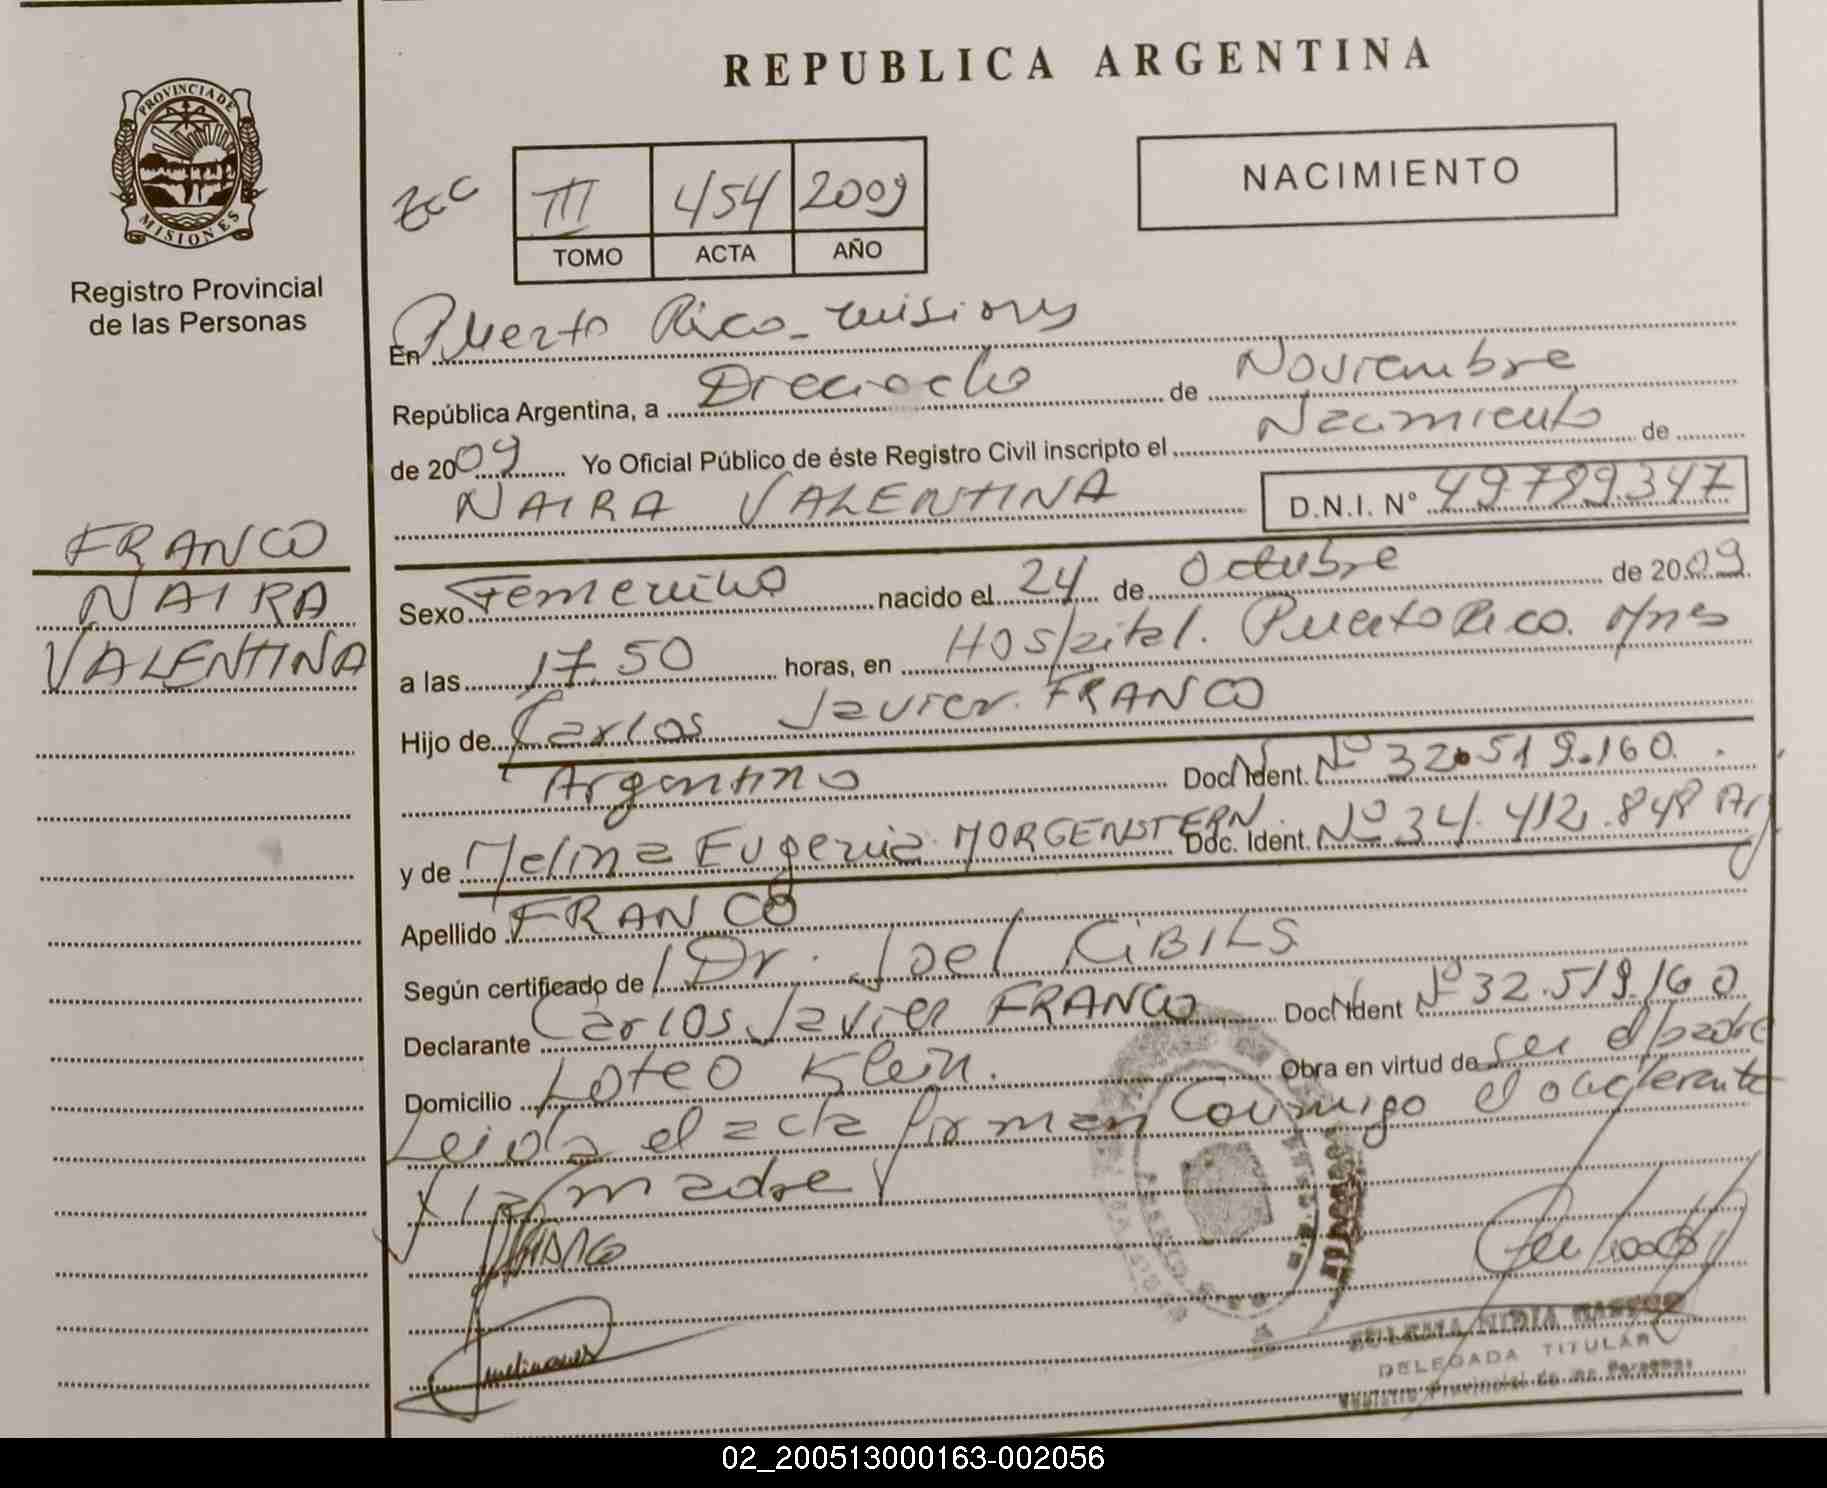 REPUBLICA ARGENTINA
PROVINCIA DE
MISIONES
Registro Provincial
de las Personas
NACIMIENTO
III 454 2009
TOMO ACTA AÑO
En Puerto Rico - Misiones
República Argentina, a Dieciocho de Noviembre
de 2009 Yo Oficial Público de éste Registro Civil inscripto el Nacimiento de
NAIRA VALENTINA D.N.I. Nº 49.789.347
FRANCO
NAIRA
VALENTINA
Sexo Femenino nacido el 24 de Octubre de 2009
a las 17.50 horas, en Hospital. Puerto Rico. Mnes
Hijo de Carlos Javier FRANCO
Argentino Doc. Ident. Nº 32.519.160.
y de Melina Eugenia MORGENSTERN. Doc. Ident. Nº 34.412.848 Arg
Apellido FRANCO
Según certificado de Dr. Joel CIBILS
Declarante Carlos Javier FRANCO Doc. Ident Nº 32.519.160
Domicilio Loteo Klein. Obra en virtud de ser el padre
Leida el acta firman Conmigo el declarante
y la madre
DELEGADA TITULAR
Registro Provincial de las Personas
02_200513000163-002056